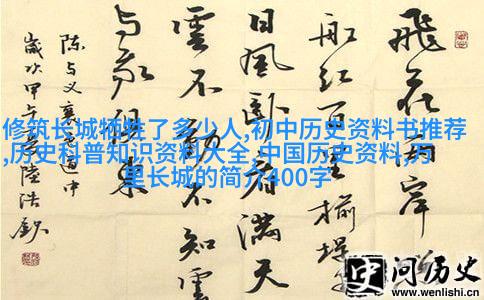 修筑长城牺牲了多少人,初中历史资料书推荐
,历史科普知识资料大全,中国历史资料,万
里长城的简介400字
飛花兩岸
船红百里榆堤
日風卧看滿天
雲不動不知雲
与我俱東
陈与义襄邑道中
歲次甲午夏陸浩
问历史
www.wenlishi.cn